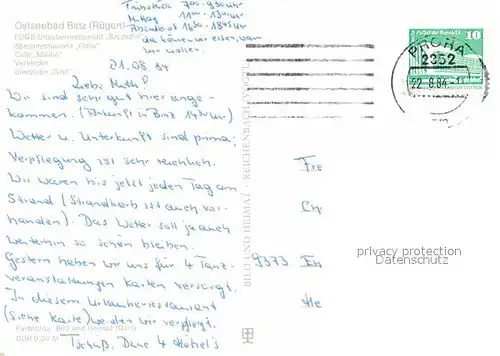 Frühstück 7⁰⁰-9³⁰ Uhr
Mittag 11⁰⁰-13⁰⁰ Uhr
Abendbrot 16³⁰-18⁴⁵ Uhr
da können wir essen, wann
wir wollen.
Ostseebad Binz (Rügen)
FDGB-Urlauberrestaurant
Speiserestaurant
Cafe
Bierstube
21.08.84
Liebe Mutti!
Wir sind sehr gut hier ange-
kommen. (Ankunft in Binz 14³⁰ Uhr)
Wetter u. Unterkunft sind prima,
Verpflegung ist sehr reichlich.
Wir waren bis jetzt jeden Tag am
Strand (Strandkorb ist auch vor-
handen). Das Wetter soll ja auch
weiterhin so schön bleiben.
Gestern haben wir uns für 4 Tanz-
veranstaltungen Karten versorgt.
In diesem Urlauberrestaurant
(siehe Karte) werden wir verpflegt.
Tschüß, Deine 4
Farbfoto: Bild und Heimat
DDR 0,20 M
BILD UND HEIMAT · REICHENBACH
PRORA
2352
22.8.84
10
Fre
Ch
9373
He
privacy protection
Datenschutz